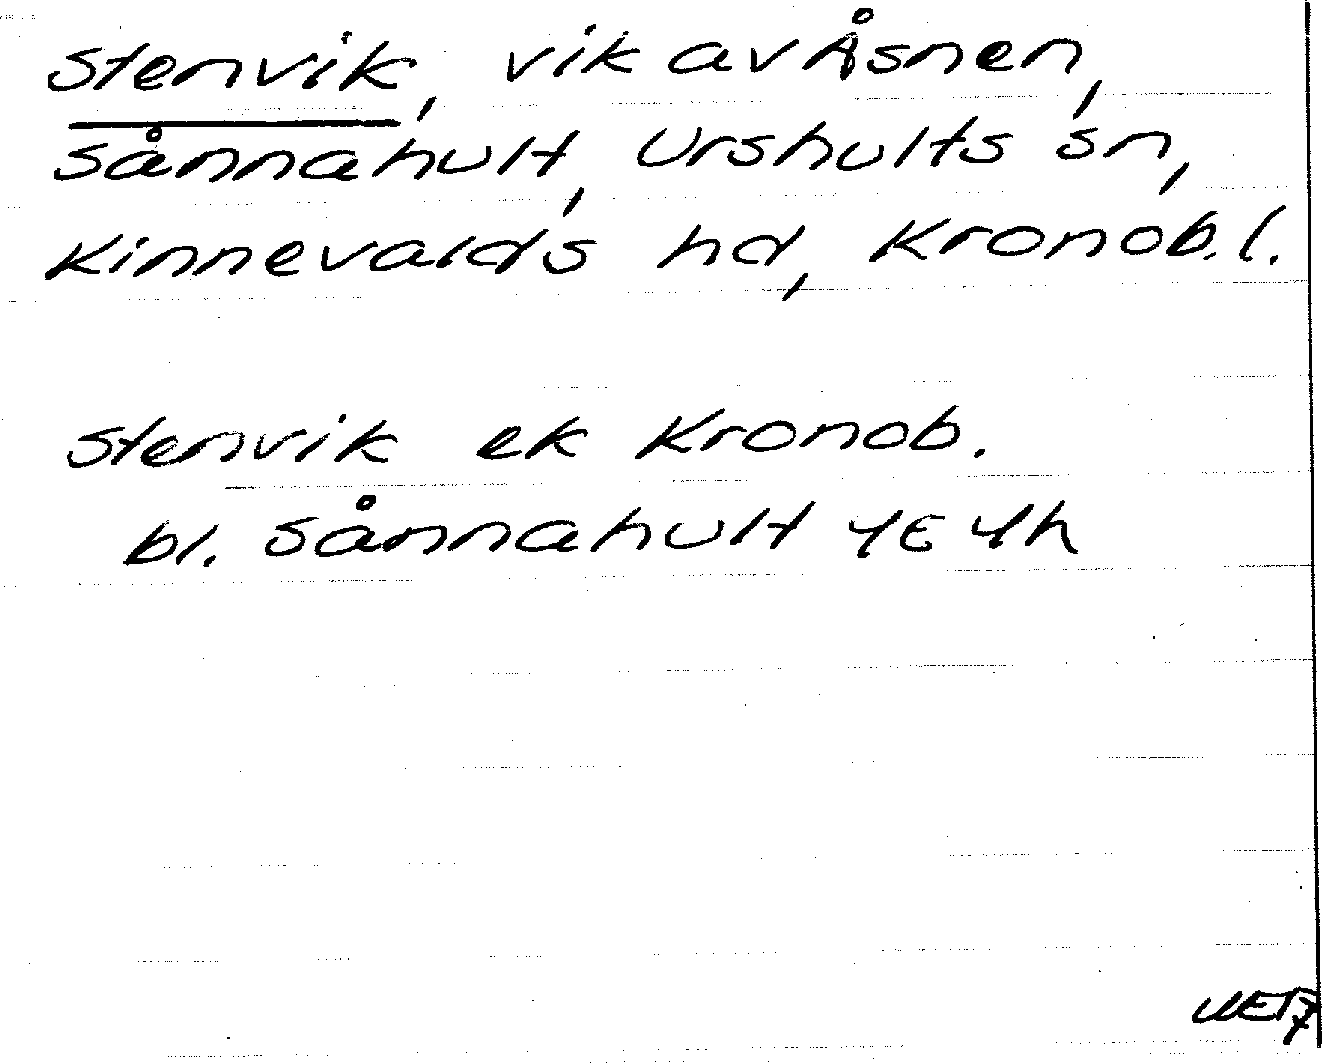 Stenvik, vik av Åsnen,
Sånnahult, Urshults sn,
Kinnevalds hd, Kronob.l.
Stenvik ek Kronob.
bl. Sånnahult 4E 4h